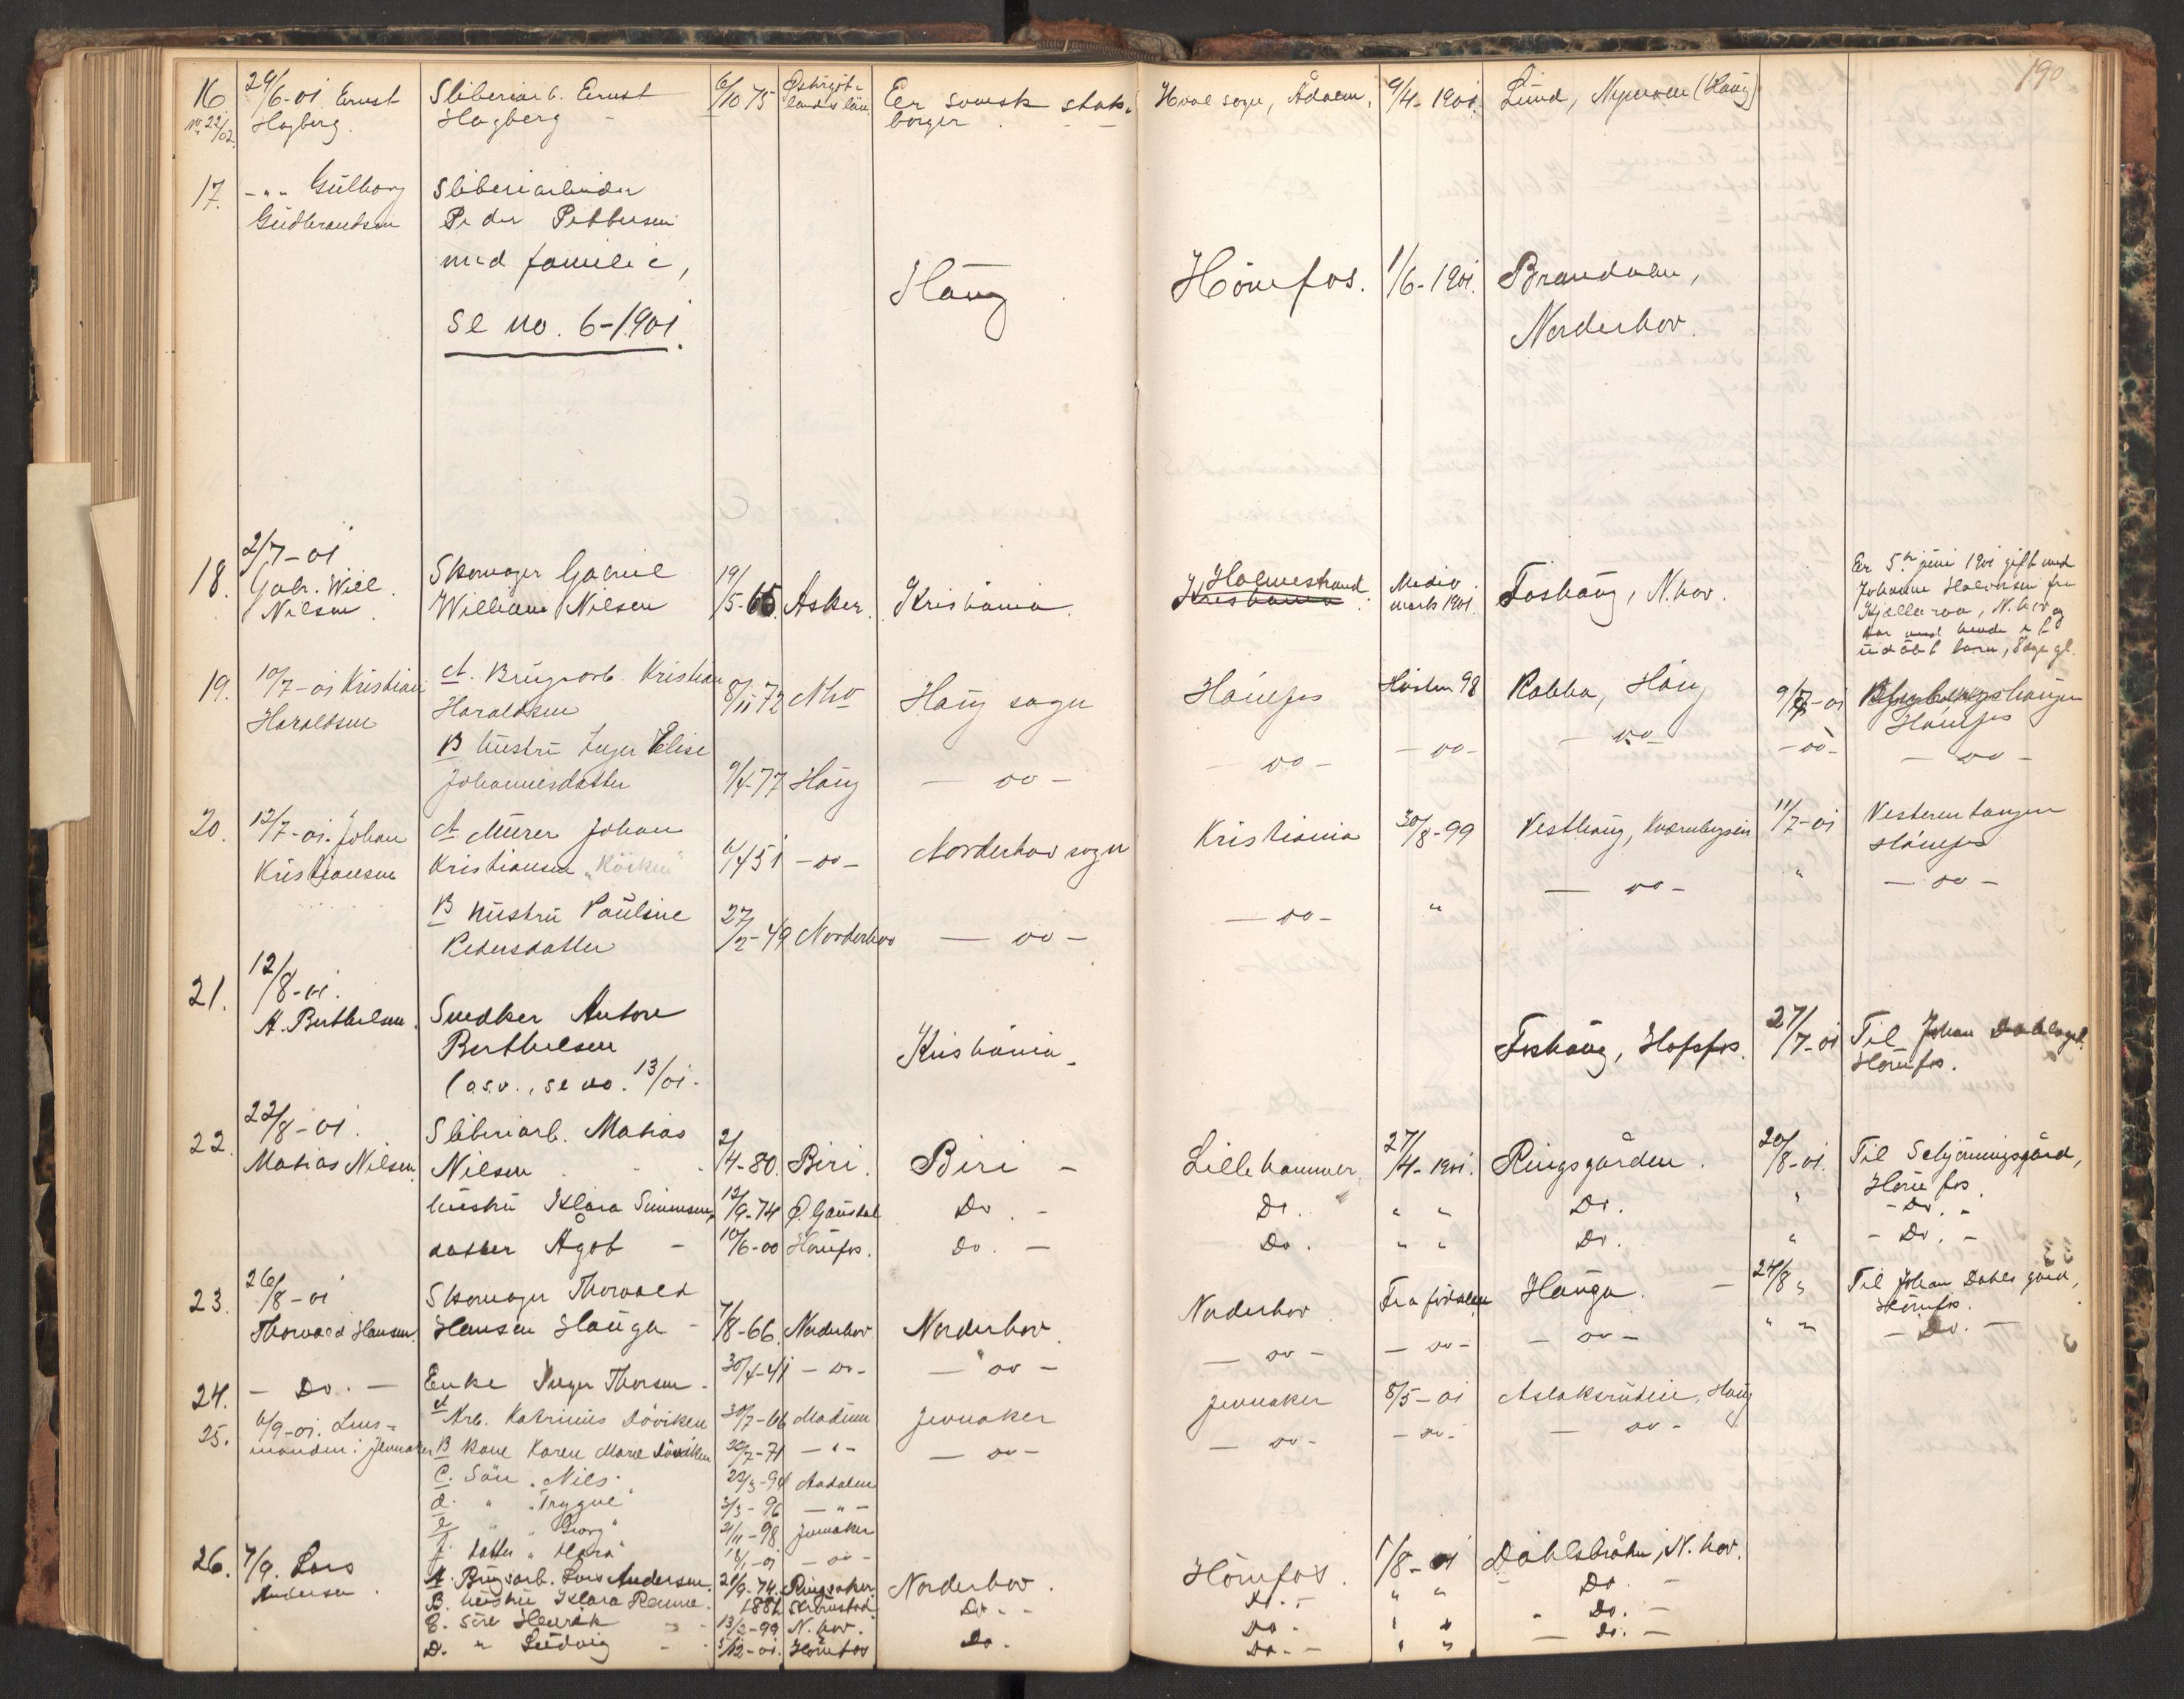 190
16. 24/6-01 Ernst Sliberiarb. Ernst 6/10 75 Östergöt- Er svensk stats- Hval sogn, Ådalen. 9/4-1901. Lund, Nymoen (Haug)
no 22/02. Hagberg. Hagberg - lands län. borger.
17. - " - Gulborg Sliberiarbeider
Gudbrandsen Peder Pettersen
med familie, Haug Hönefos. 1/6-1901. Brandalen,
se no. 6-1901. Norderhov.
18. 2/7-01
Gabr. Will. Skomager Gabriel 19/5-65. Asker. Kristiania. Holmestrand Medio Foshaug, N.hov. Er 5te juni 1901 gift med
Nilsen. William Nilsen Kristiania marts 1901. Johanne Halvorsen fra
Kjelleraa, N.hov og
har med hende et
udöbt barn, 8 dage gl.
19. 10/7-01 Kristian A. Brugsarb. Kristian 8/11 72 Nhov Haug sogn Hönefos Hösten 98 Rabba, Haug 9/7-01
Haraldsen Haraldsen Hönefos
B hustru Inger Elise
Johannesdatter 9/4-77 Haug - do - - do - - do - - do - - do - - do -
20. 12/7-01. Johan A. Murer Johan Kristiania 30/8-99 Vesthaug, Kværnbergsein 11/7-01 Vesterntangen
Kristiansen Kristiansen "Röiken" 6/4 51 - do - Norderhov sogn Hönefos
B hustru Pauline 27/2-49 Norderhov - do - - do - " - do - " - do -
Pedersdatter
21. 12/8-01.
A. Berthelsen. Snedker Antore Kristiania. Foshaug, Hofsfos. 27/7-01 Til Johan Dahlsgd.
Berthelsen Hönefos.
(o.s.v., se no. 13/01.
22. 22/8-01. Sliberiarb. Matias
Matias Nilsen Nilsen 2/4-80. Biri. Biri - Lillehammer. 27/4-1901. Ringsgården. 20/8-01. Til Schjönningsgård,
Hönefos.
hustru Klara Simensen, 12/9-74 Ö. Gausdal Do. - Do. " " Do. " - Do. -
datter Ågot - 10/6-00 Hönefos. Do. - Do. " " Do. " - Do. -
23. 26/8-01 Skomager Thorvald
Thorvald Hansen. Hansen Hauga - 7/8-66. Norderhov. Norderhov. Norderhov. Fra födselen Hauga. - 24/8 " Til Johan Dahls gård,
Hönefos.
24. - Do. - Enke Inger Thorsen - 30/4-41 - do - - do - - do - - do - - do - " " - Do. -
25. 6/9-01. Lens- A Arb. Katrinius Döviken 30/7-66 Modum Jevnaker Jevnaker 8/5-01 Aslaksrudeie, Haug
manden i Jevnaker B kone Karen Marie Döviken 22/7-71 - " - - do - - do - - do - - do -
C. Sön "Nils" 23/3-94 Aadalen
d. " "Trygve" 3/3-96 - " -
e " "Georg" 21/11-98 Jevnaker
f. datter "Klara" 18/1-01 - do -
26. 7/9. Lars A. Brugsarb. Lars Andersen. 21/9-74. Ringsaker. Norderhov. Hönefos. 1/8-01 Dahlsbråten, N.hov.
Andersen. B. hustru Klara Renne. 1881 Strömstad. Do. - Do. - " " Do. -
C. Sön Henrik 13/2-99 N.hov. Do. " " Do. -
D. " Ludvig 5/12-01. Hönefos Do. Do. - " " - Do. -